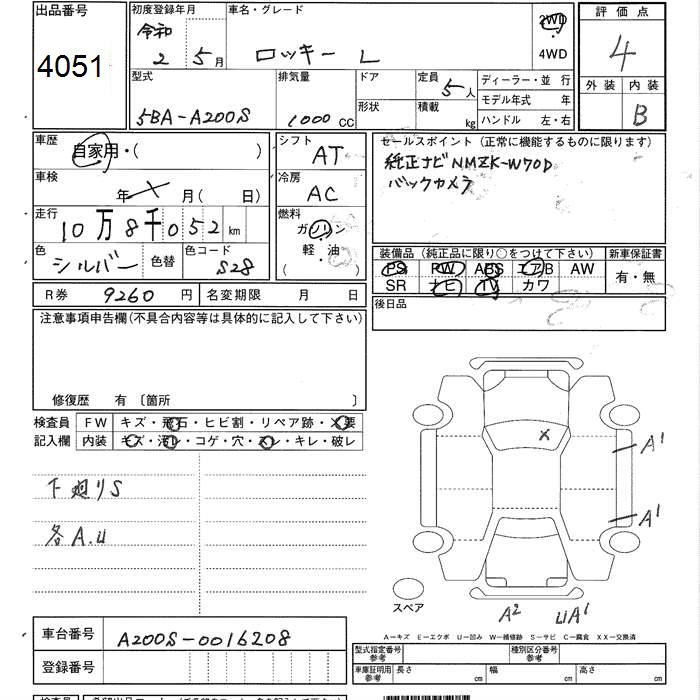 出品番号
4051
初度登録年月
令和
2 5月
車名・グレード
ロッキー L
2WD
4WD
評価点
4
外装 内装
B
型式
5BA-A200S
排気量
1000 CC
ドア
形状
定員
5人
積載
kg
ディーラー・並 行
モデル年式 年
ハンドル 左・右
車歴
自家用・( )
車検
年 X 月( 日)
走行
10万8千052 km
色
シルバー
色替
色コード
S28
シフト
AT
冷房
AC
燃料
ガソリン
軽・油
( )
セールスポイント (正常に機能するものに限ります)
純正ナビ NMZK-W70D
バックカメラ
装備品 (純正品に限り○をつけて下さい)
新車保証書
PS PW ABS エアB AW
SR ナビ TV カワ
有・無
後日品
R券 9260 円
名変期限 月 日
注意事項申告欄(不具合内容等は具体的に記入して下さい)
修復歴 有 〔箇所 〕
検査員
記入欄
FW キズ・飛石・ヒビ割・リペア跡・X要
内装 キズ・汚レ・コゲ・穴・スレ・キレ・破レ
下廻りS
各A.U
X
A1
A1
A2
UA1
スペア
A-キズ E-エクボ U-凹み W-補修跡 S-サビ C-腐食 XX-交換済
車台番号
A200S-0016208
登録番号
型式指定番号
参考
種別区分番号
参考
車庫証明用
参考
長さ cm
幅 cm
高さ cm